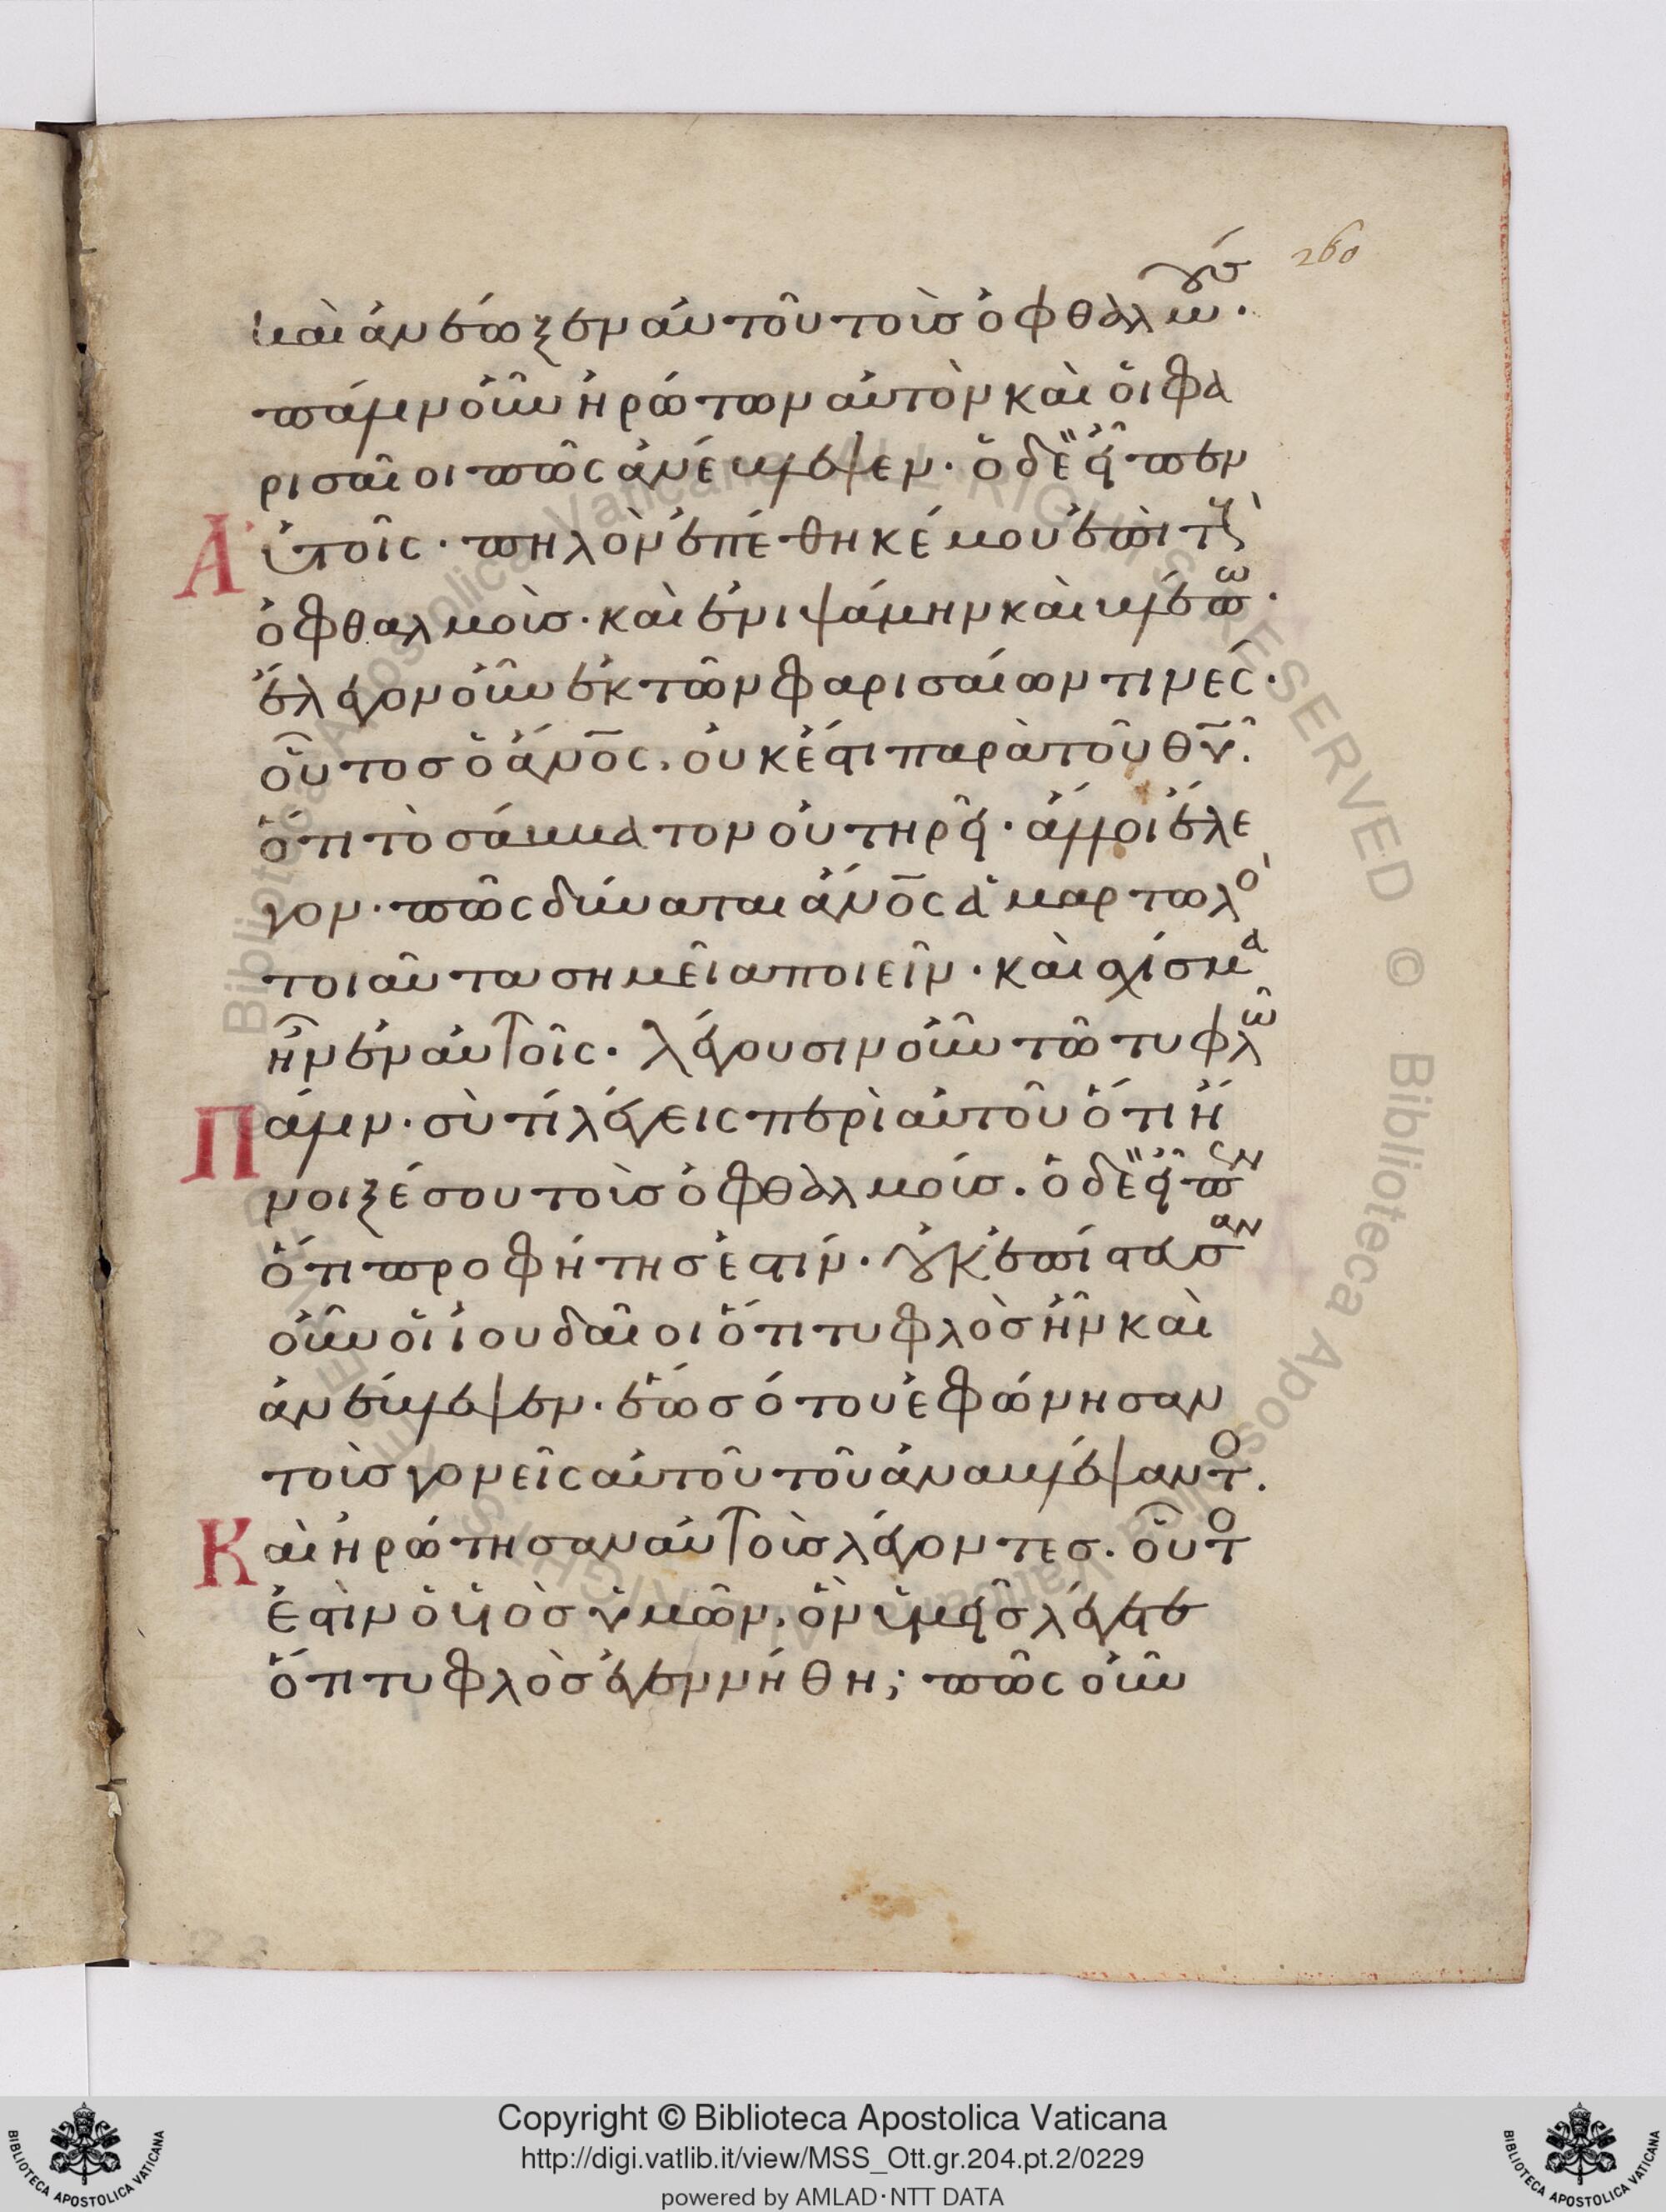 260
καὶ ἀνέωξεν αὐτοῦ τοὺσ ὀφθαλμούσ.
πάλιν οὖν ἠρώτων αὐτὸν καὶ οἱ φα
ρισαῖοι πῶς ἀνέβλεψεν. ὁ δὲ εἶπεν
Αὐτοῖς. πηλὸν ἐπέθηκέ μου ἐπὶ τοὺς
ὀφθαλμοὺσ. καὶ ἐνιψάμην καὶ βλέπω.
ἔλεγον οὖν ἐκ τῶν φαρισαίων τινές.
οὗτοσ ὁ ἄν̅ο̅ς. οὐκ ἔστι παρὰ τοῦ θ̅υ̅.
ὅτι τὸ σάββατον οὐ τηρεῖ. ἄλλοι ἔλε
γον. πῶς δύναται ἄν̅ο̅ς ἁμαρτωλὸ
τοιαῦτα σημεῖα ποιεῖν. καὶ σχίσμα
ἦν ἐν αὐτοῖς. λέγουσιν οὖν τῶ τυφλῶ
Πάλιν. σὺ τί λέγεις περὶ αὐτοῦ ὅτι ἤ
νοιξέ σου τοὺσ ὀφθαλμούσ. ὁ δὲ εἶπεν
ὅτι προφήτησ ἐστίν. οὐκ ἐπίστευσαν
οὖν οἱ ἰουδαῖοι ὅτι τυφλὸσ ἦν καὶ
ἀνέβλεψεν. ἕωσ ὅτου ἐφώνησαν
τοὺσ γονεῖς αὐτοῦ τοῦ ἀναβλέψαντο.
Καὶ ἠρώτησαν αὐτοὺσ λέγοντεσ. οὗτο
ἐστὶν ὁ υἱὸσ ὑμῶν. ὃν ὑμεῖσ λέγετε
ὅτι τυφλὸσ ἐγεννήθη; πῶς οὖν
Copyright © Biblioteca Apostolica Vaticana
http://digi.vatlib.it/view/MSS_Ott.gr.204.pt.2/0229
powered by AMLAD·NTT DATA